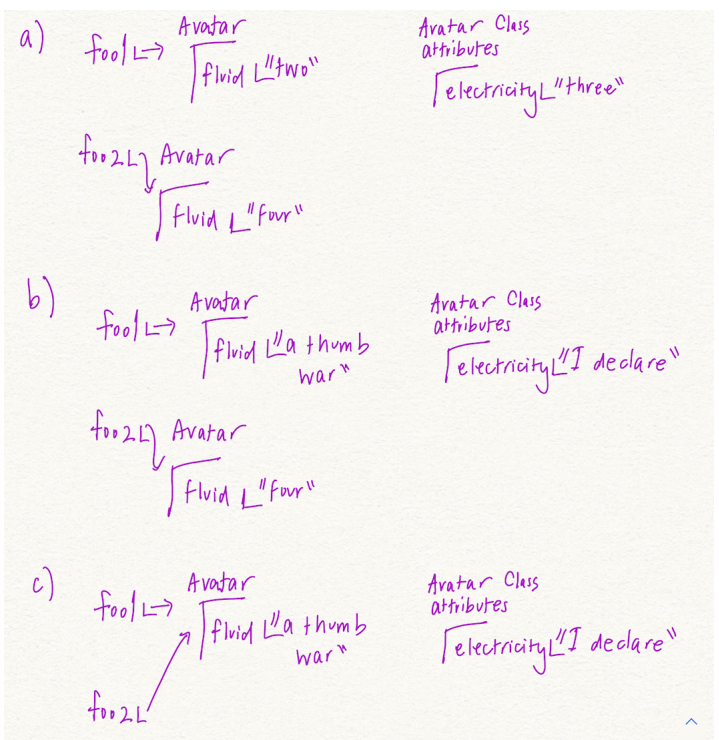 a)
foo1
Avatar
fluid "two"
Avatar Class
attributes
electricity "three"
foo2 Avatar
fluid "four"
b)
foo1
Avatar
fluid "a thumb
war"
Avatar Class
attributes
electricity "I declare"
foo2 Avatar
fluid "four"
c)
foo1
Avatar
fluid "a thumb
war"
Avatar Class
attributes
electricity "I declare"
foo2